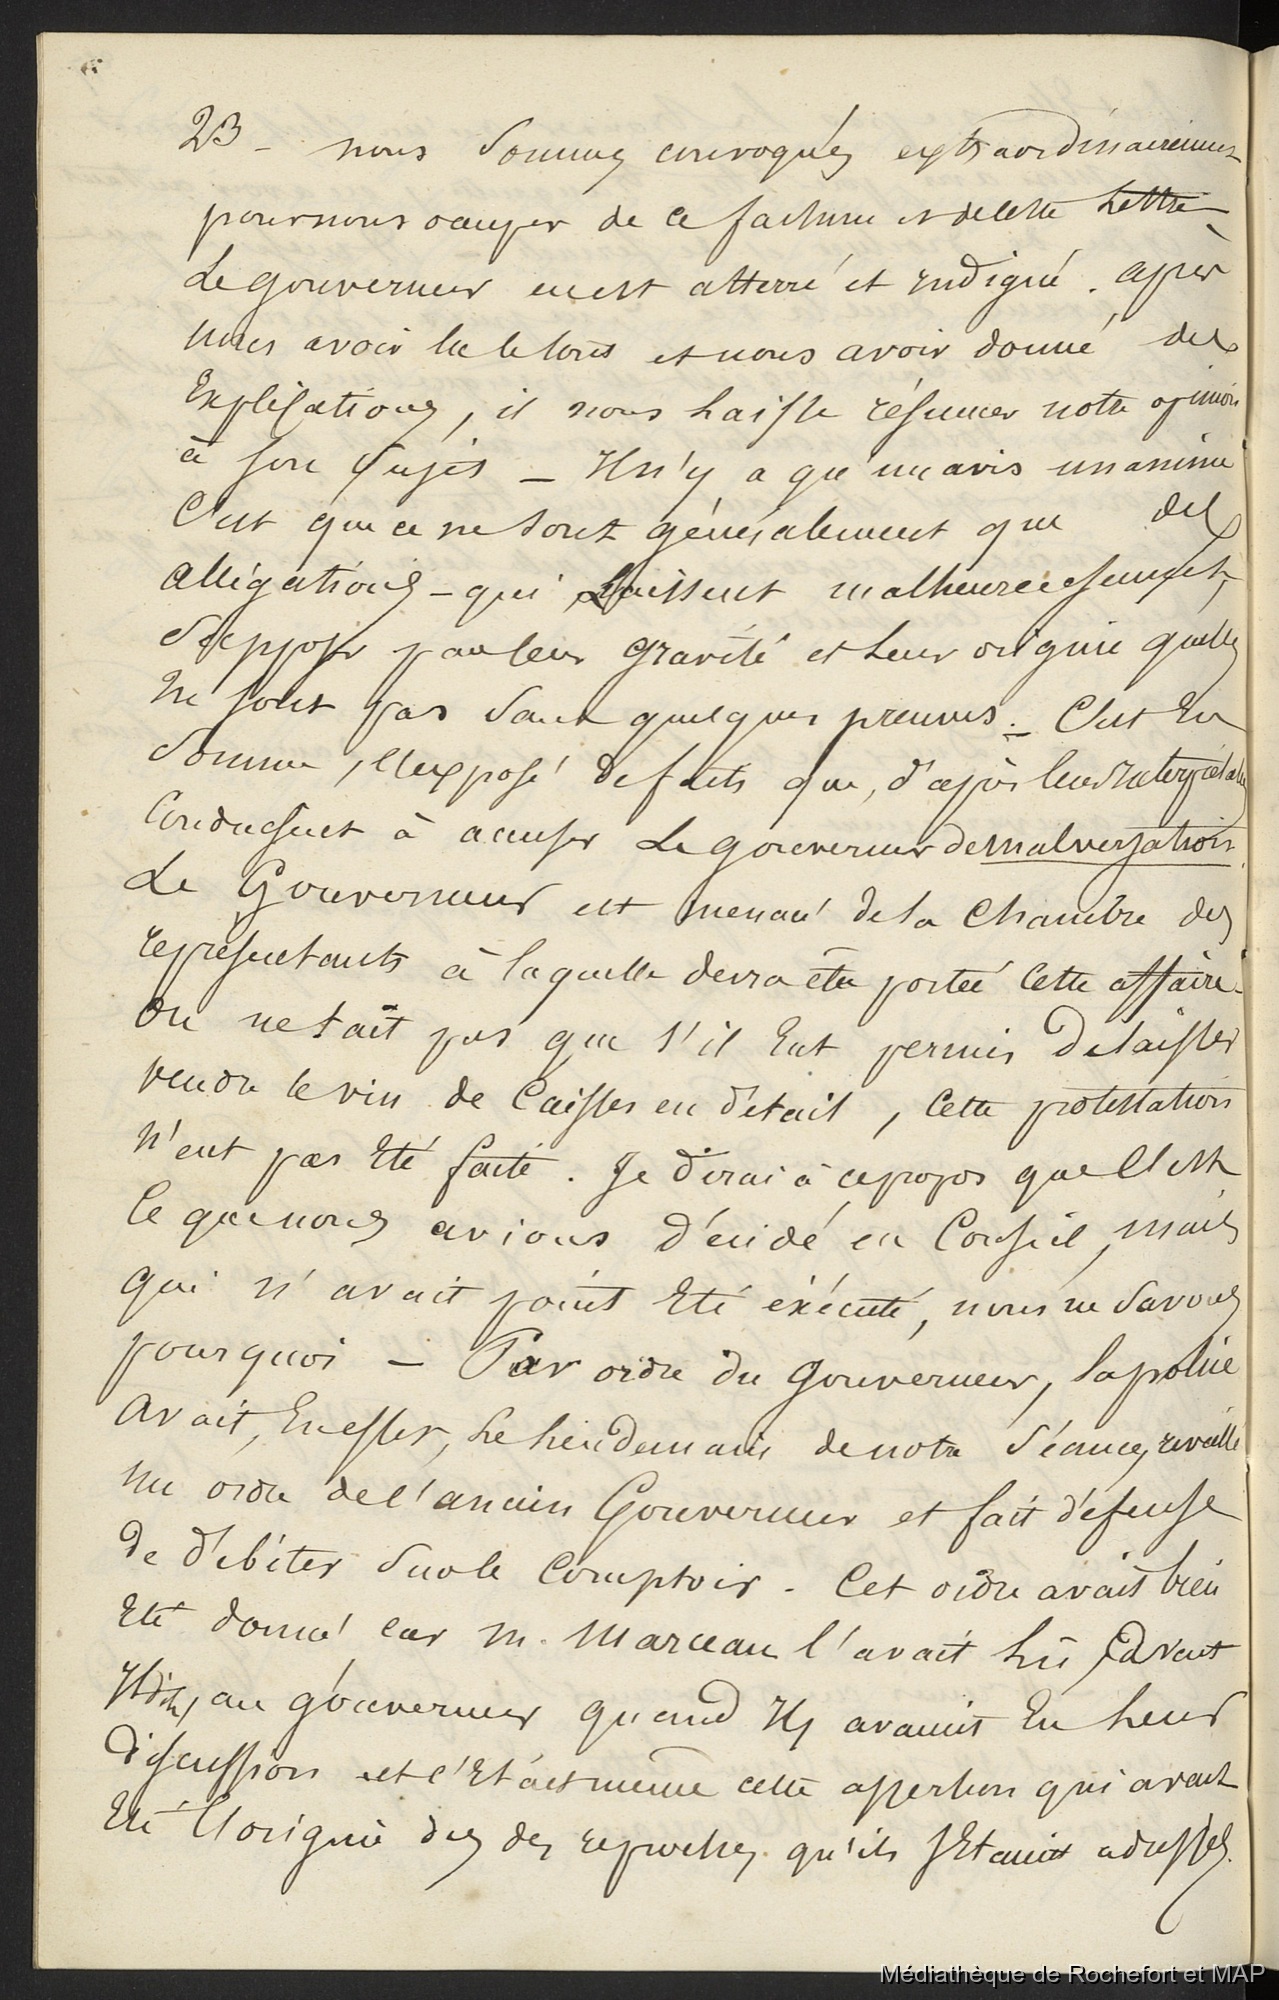 23 - nous sommes convoqués extraordinairement
pour nous occuper de ce factum et de cette lettre
Le gouverneur en est atterré et indigné. après
nous avoir lu le tout et nous avoir donné des
Explications, il nous laisse résumer notre opinion
à son sujet - Il n'y a qu'un avis unanime
C'est que ce ne sont généralement que des
allégations - qui laissent malheureusement,
supposer par leur gravité et leur origine quelles
ne sont pas sans quelques preuves. - C'est En
somme, l'exposé de faits que, d'après leurs
Conduisent à accuser Le gouverneur de malversation.
Le Gouverneur est menacé de la Chambre des
représentants à laquelle devra être portée cette affaire.
On ne tait pas que s'il Eut permis de laisser
vendre le vin de Caisses en détail, cette protestation
n'eut pas Eté faite. Je dirai à ce propos que C'est
Ce que nous avions décidé en Conseil, mais
qui n'avait point Eté éxécuté, nous ne savons
pourquoi - Par ordre du gouverneur, la police
avait, En effet, le lendemain de notre séance, réveillé
un ordre de l'ancien Gouverneur et fait défense
de débiter sur le Comptoir. Cet ordre avait bien
Eté donné car M. Marceau l'avait lu,
au gouverneur quand Ils avaient Eu leur
discussion et c'Etait même cette assertion qui avait
Eté l'origine des des reproches qu'ils s'Etaient adressés.
Médiathèque de Rochefort et MAP